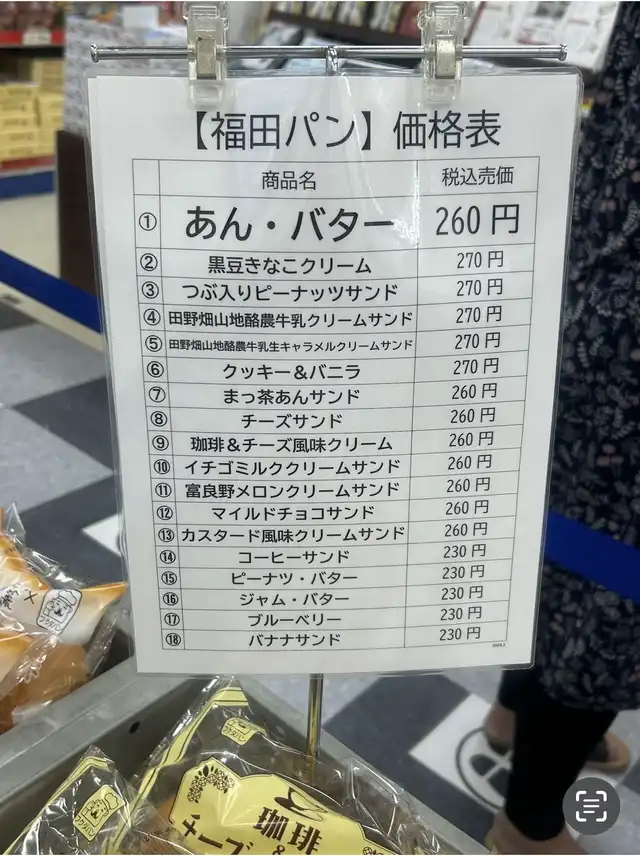 【福田パン】価格表
商品名 税込売価
① あん・バター 260円
② 黒豆きなこクリーム 270円
③ つぶ入りピーナッツサンド 270円
④ 田野畑山地酪農牛乳クリームサンド 270円
⑤ 田野畑山地酪農牛乳生キャラメルクリームサンド 270円
⑥ クッキー&バニラ 270円
⑦ まっ茶あんサンド 260円
⑧ チーズサンド 260円
⑨ 珈琲&チーズ風味クリーム 260円
⑩ イチゴミルククリームサンド 260円
⑪ 富良野メロンクリームサンド 260円
⑫ マイルドチョコサンド 260円
⑬ カスタード風味クリームサンド 260円
⑭ コーヒーサンド 230円
⑮ ピーナツ・バター 230円
⑯ ジャム・バター 230円
⑰ ブルーベリー 230円
⑱ バナナサンド 230円
×
フクダパン
フクダパン
フクダパン
珈琲
&
チーズ